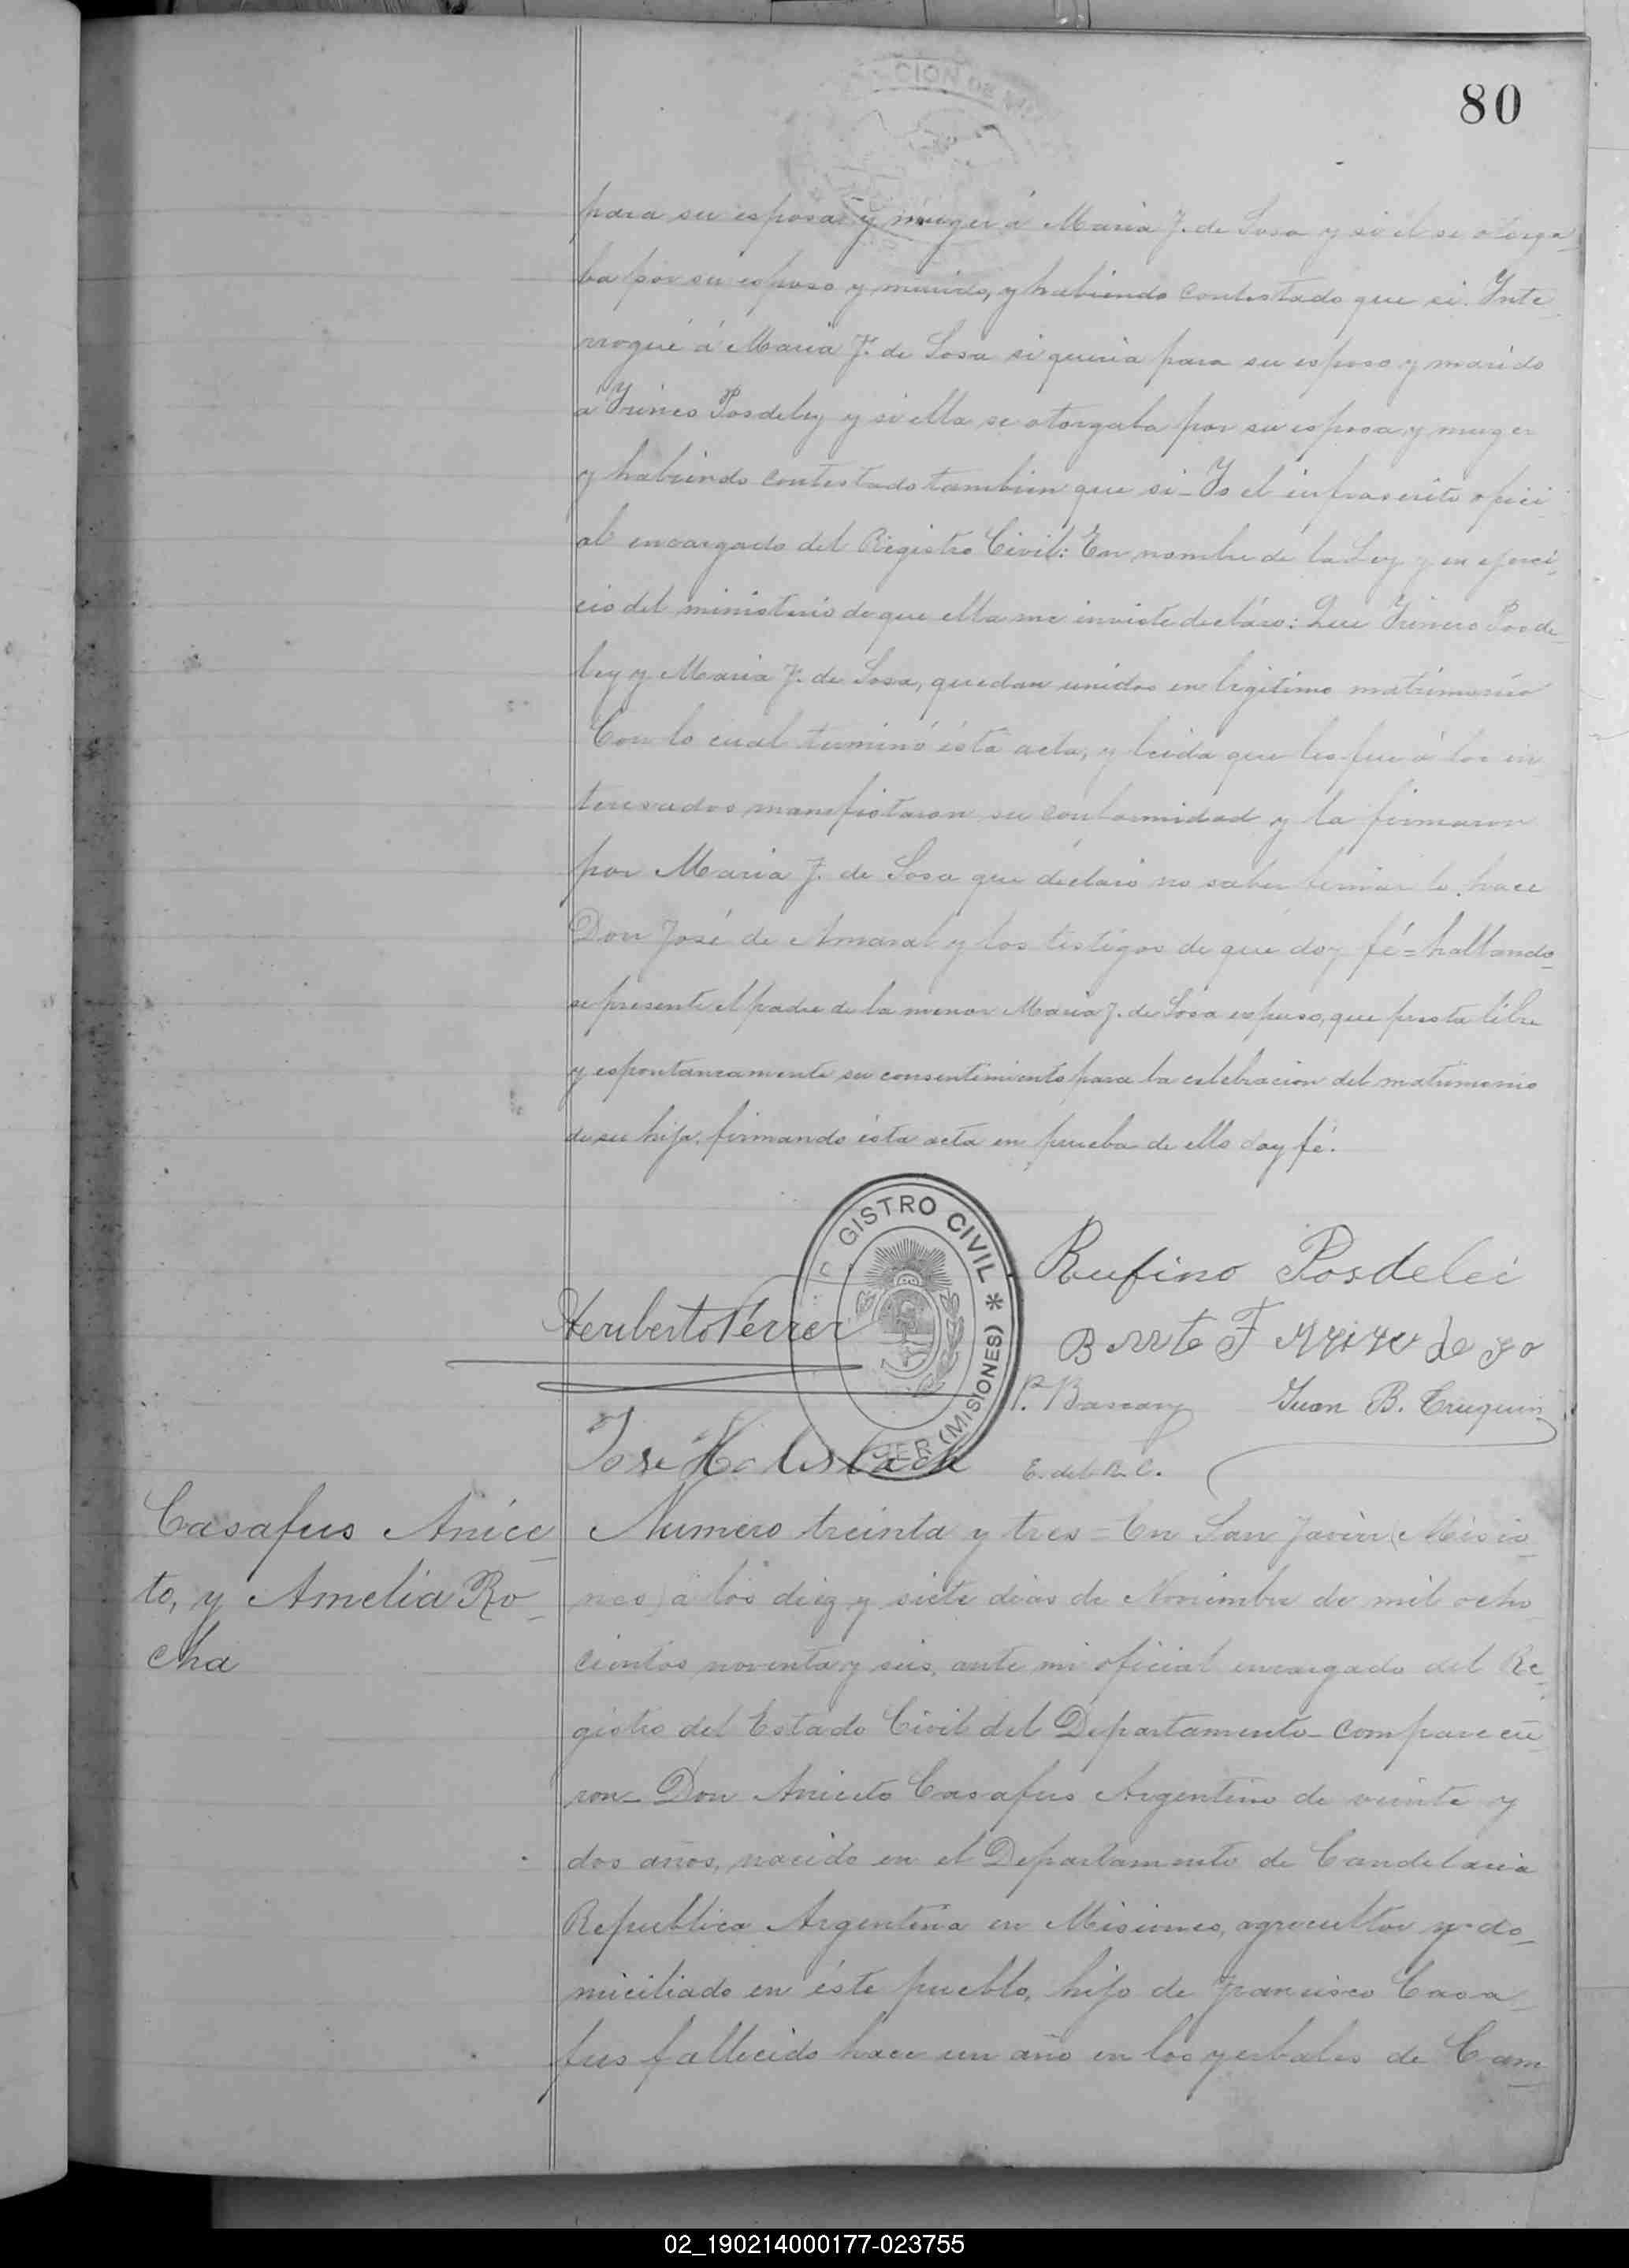 80
para su esposa y muger á Maria J. de Sosa y si él se otorga
ba por su esposo y marido, y habiendo contestado que si. Inte
rrogué á Maria J. de Sosa si queria para su esposo y marido
á Irineo Posdeley y si ella se otorgaba por su esposa y muger
y habiendo contestado tambien que si_ Yo el infrascrito ofici
al encargado del Registro Civil: En nombre de la Ley y en ejerci_
cio del ministerio de que ella me inviste declaro: Que Irineo Posde
ley y Maria J. de Sosa, quedan unidos en legitimo matrimonio
Con lo cual terminó ésta acta, y leida que les fue á los in
teresados manifistaron su conformidad y la firmaron
por Maria J. de Sosa que declaró no saber firmar lo hace
Don José de Amaral y los testigos de que doy fé = hallando_
se presente el padre de la menor Maria J. de Sosa espuso, que presta libre
y espontaneamente su consentimiento para la celebracion del matrimonio
de su hija, firmando ésta acta en prueba de ello doy fé.
GISTRO CIVIL * (MISIONES)
Rufino Posdelei
Heriberto Ferrer
P. Bascary Juan B. Truquin
Jose
E. del R. C.
Casafus Anice_
to, y Amelia Ro_
cha
Numero treinta y tres = En San Javier (Misio_
nes) á los diez y siete dias de Noviembre de mil ocho
cientos noventa y seis, ante mi oficial encargado del Re_
gistro del Estado Civil del Departamento_ comparecie
ron_ Don Aniceto Casafus Argentino de veinte y
dos años, nacido en el Departamento de Candelaria
Republica Argentina en Misiones, agricultor y do_
miciliado en éste pueblo, hijo de Francisco Casa_
fus fallecido hace un año en los yerbales de Cam_
02_190214000177-023755